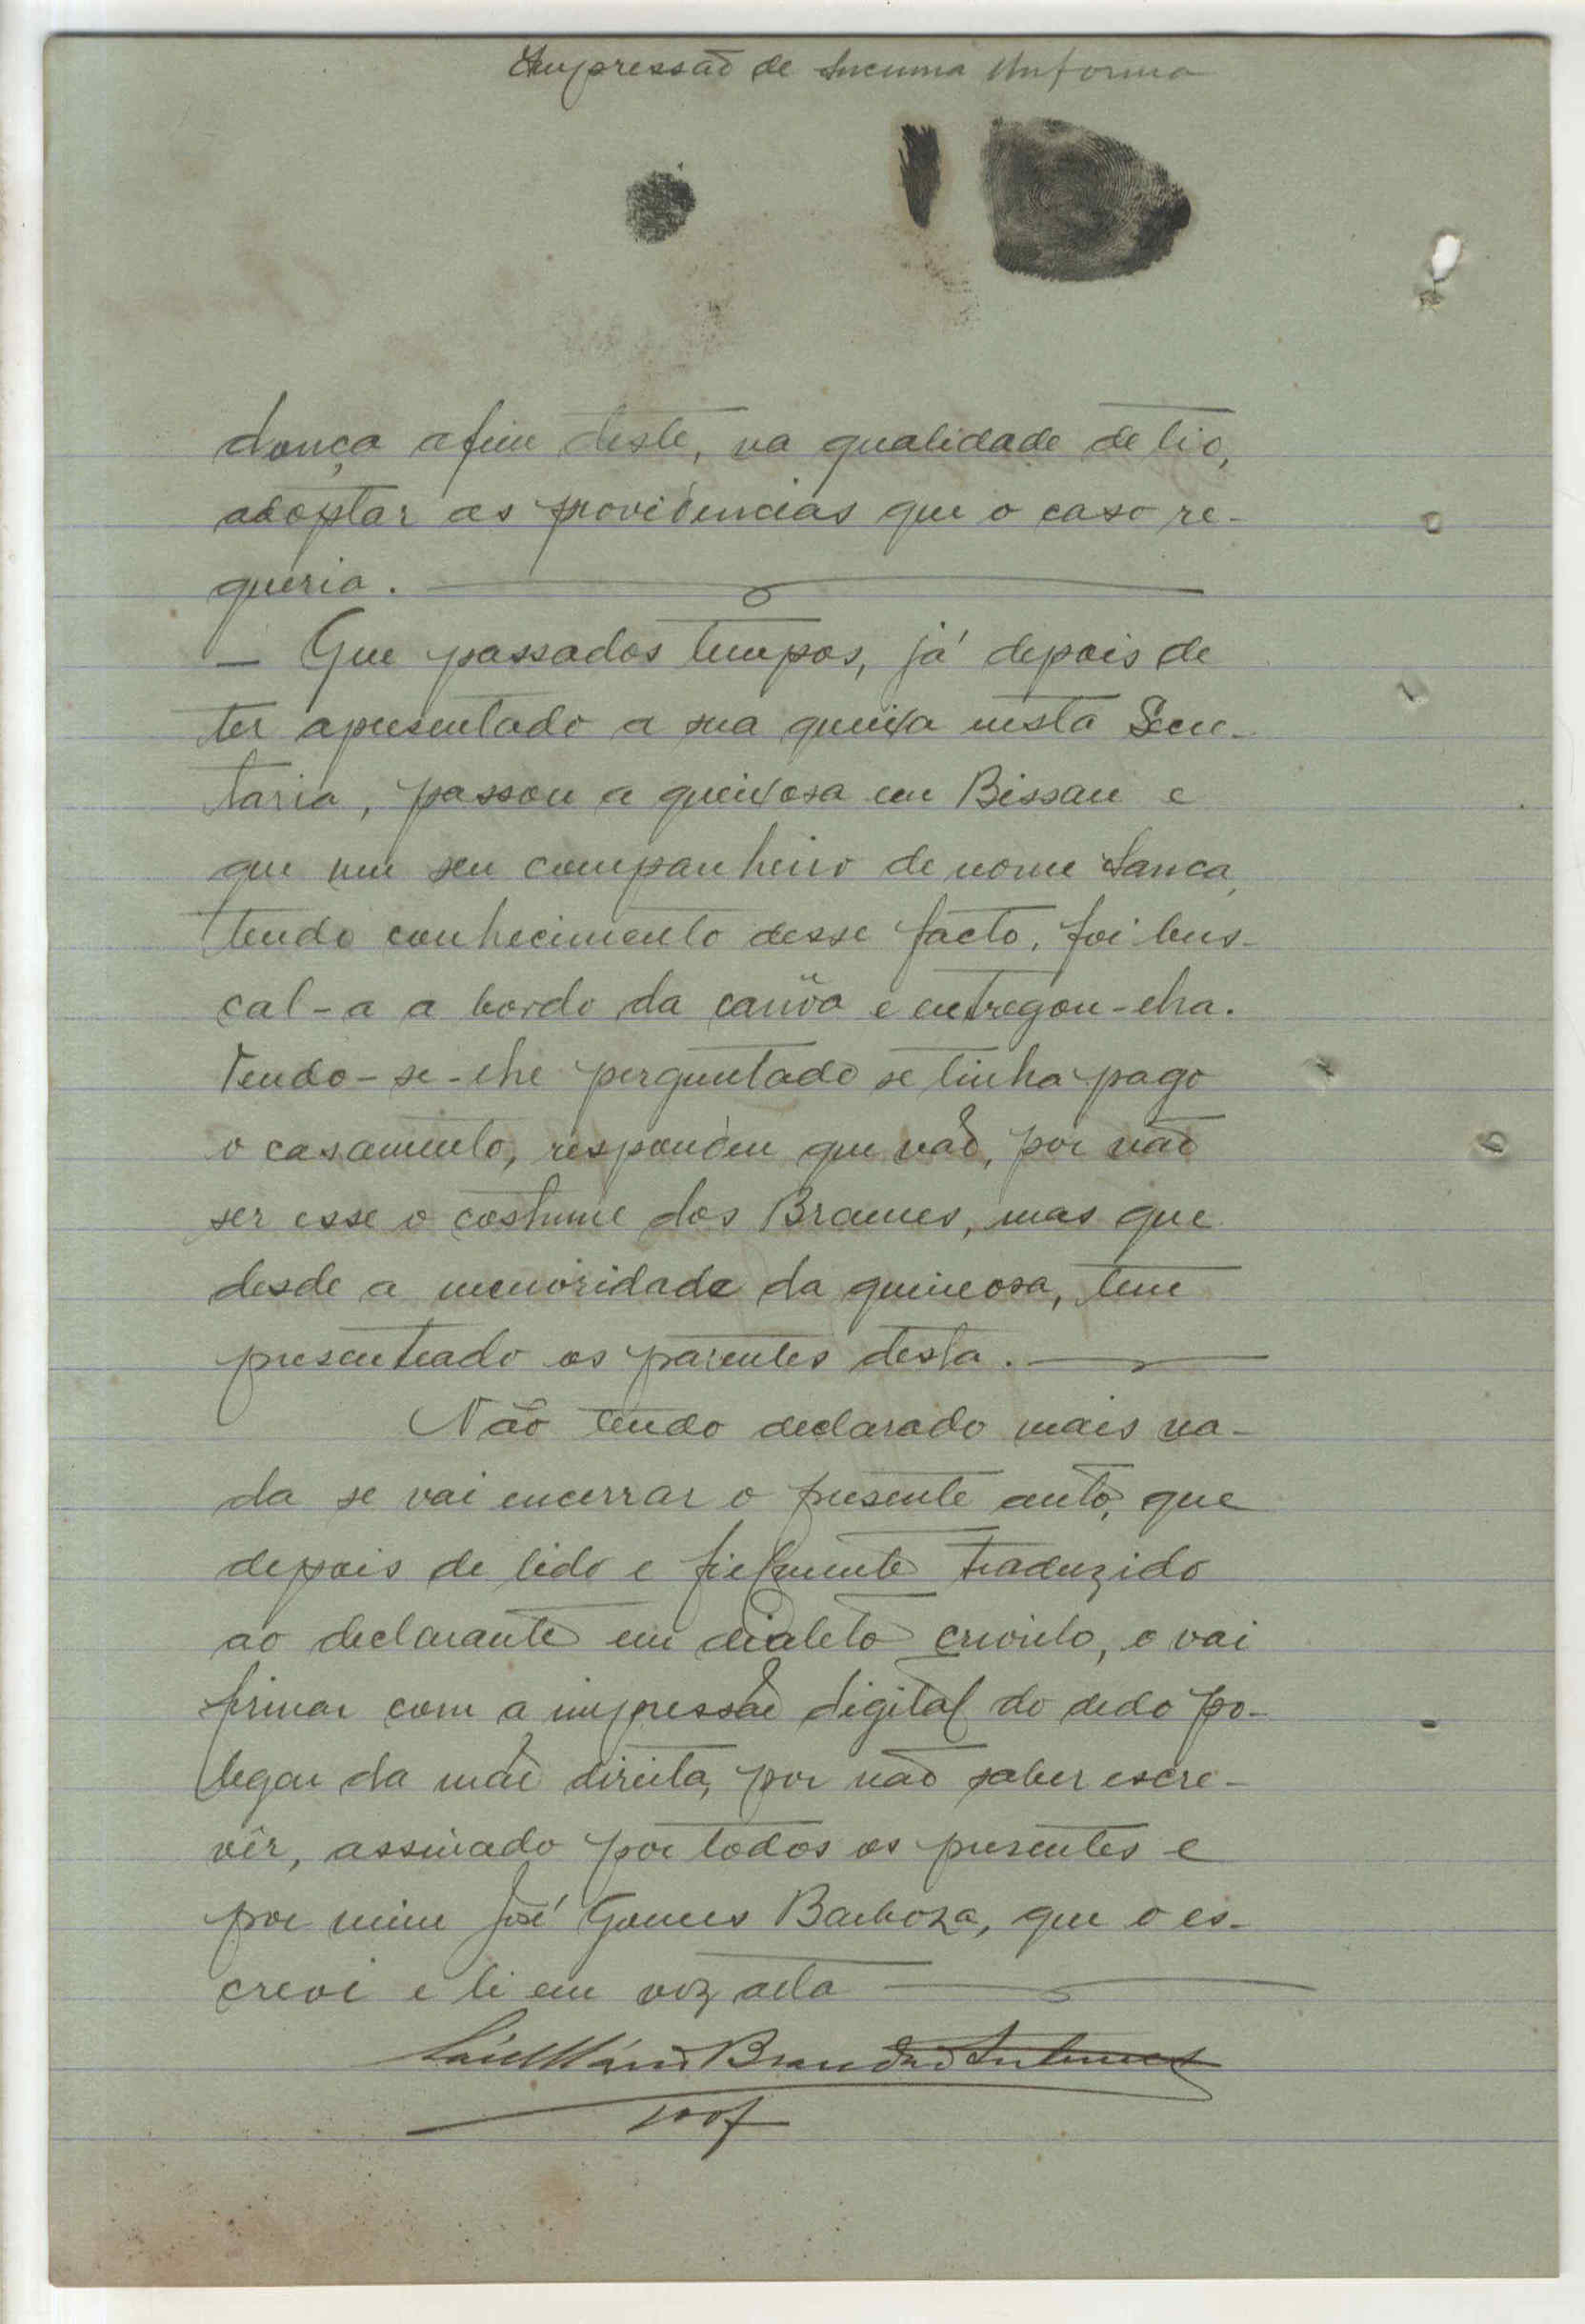 Impressão de Incuma Unforma
donça afim deste, na qualidade de tio,
adoptar as providencias que o caso re-
queria.
— Que passados tempos, já depois de
ter apresentado a sua queixa nesta Secre-
taria, passou a queixosa em Bissau e
que um seu companheiro de nome Sanca,
tendo conhecimento desse facto, foi bus-
cal-a a bordo da canôa e entregou-lha.
Tendo-se-lhe perguntado se tinha pago
o casamento, respondeu que não, por não
ser esse o costume dos Brames, mas que
desde a menoridade da queixosa, tem
presenteado os parentes desta.
Não tendo declarado mais na-
da se vai encerrar o presente auto, que
depois de lido e fielmente traduzido
ao declarante em dialeto crioulo, o vai
firmar com a impressão digital do dedo po-
legar da mão direita, por não saber escre-
vêr, assinado por todos os presentes e
por mim José Gomes Barboza, que o es-
crevi e li em voz alta
Brandão Antunes